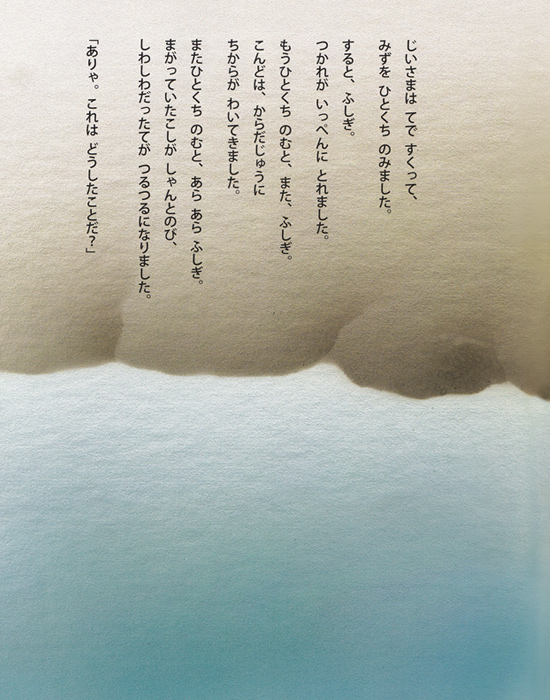 じいさまは てで すくって、
みずを ひとくち のみました。
すると、ふしぎ。
つかれが いっぺんに とれました。
もうひとくち のむと、また、ふしぎ。
こんどは、からだじゅうに
ちからが わいてきました。
またひとくち のむと、あら あら ふしぎ。
まがっていたこしが しゃんとのび、
しわしわだったてが つるつるになりました。
「ありゃ。これは どうしたことだ？」